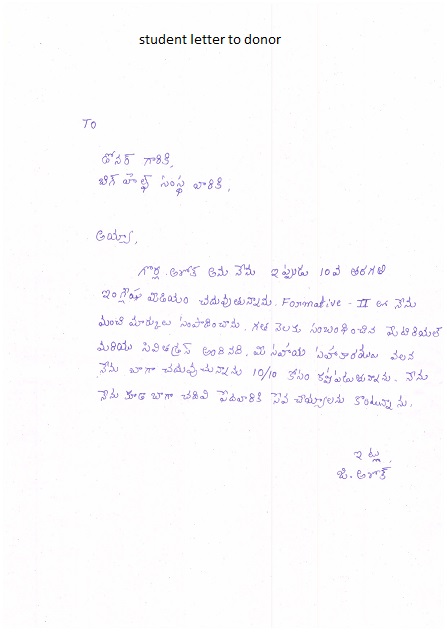 student letter to donor
To
డోనర్ గారికి,
బిగ్ హెల్ప్ సంస్థ వారికి,
అయ్యా,
గొర్ల అశోక్ అను నేను ఇప్పుడు 10వ తరగతి
ఇంగ్లీషు మీడియం చదువుతున్నాను. Formative - II లో నేను
మంచి మార్కులు సంపాదించాను. గత నెలకు సంబంధించిన మెటీరియల్
మరియు అందినవి, మీ సహాయ సహకారముల వలన
నేను బాగా చదువుచున్నాను 10/10 కోసం కష్టపడుతున్నాను. నేను
నేను కూడ బాగా చదివి పేదవారికి సేవ చేయ్యాలను కొంటున్నాను.
ఇట్లు
జి. అశోక్